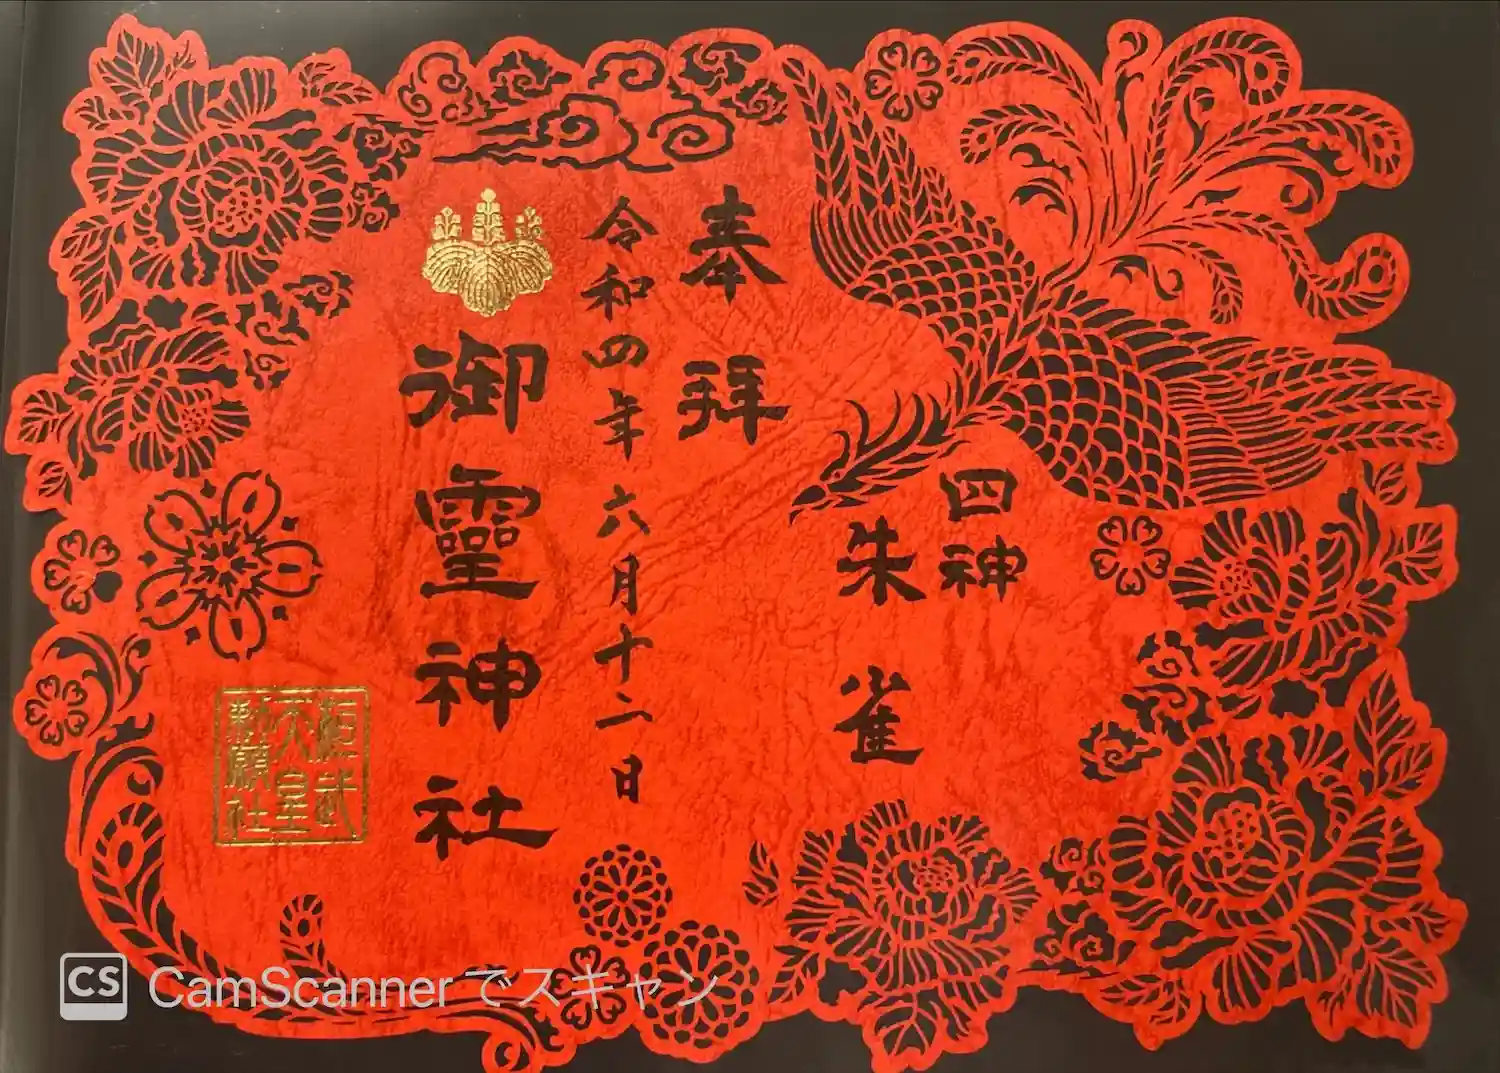 奉拝
四神
朱雀
令和四年六月十二日
御靈神社
桓武
天皇
勅願社
CS CamScannerでスキャン